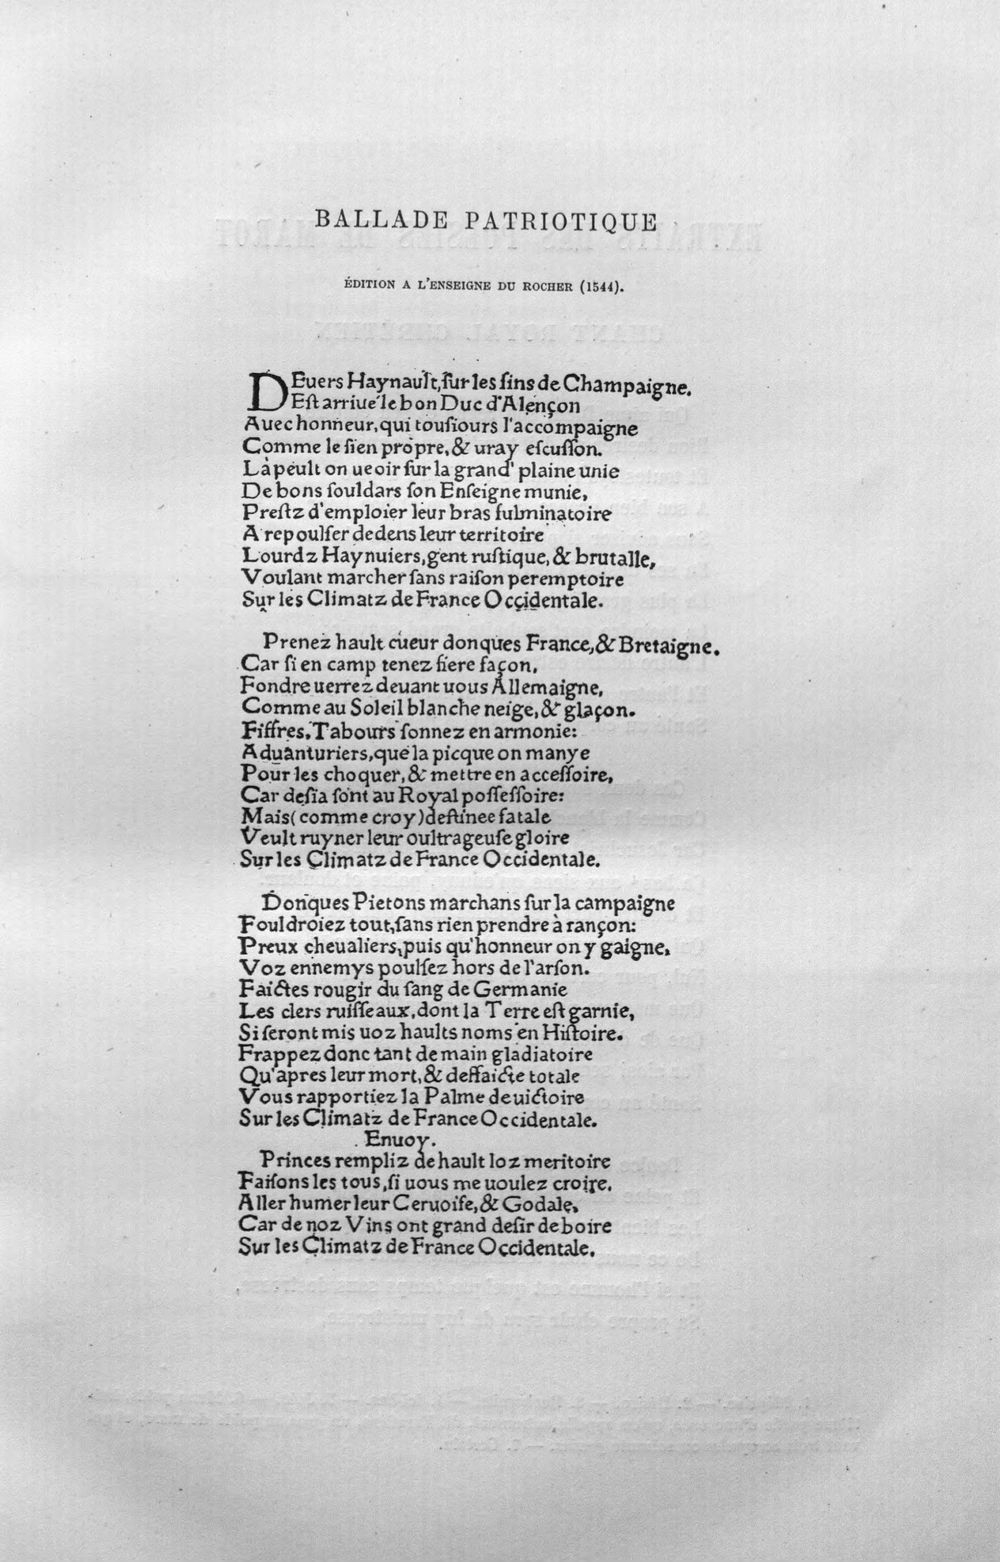 BALLADE PATRIOTIQUE
ÉDITION A L'ENSEIGNE DU ROCHER (1544).
DEuers Haynault, ſur les fins de Champaigne.
Eſt arriué le bon Duc d'Alençon
Auec honneur, qui touſiours l'accompaigne
Comme le ſien propre, & uray eſcuſſon.
Là peult on ueoir ſur la grand' plaine unie
De bons ſouldars ſon Enſeigne munie,
Preſtz d'emploier leur bras fulminatoire
A repoulſer dedens leur territoire
Lourdz Haynuiers, gent ruſtique, & brutalle,
Voulant marcher ſans raiſon peremptoire
Sur les Climatz de France Occidentale.
Prenez hault cueur donques France, & Bretaigne.
Car ſi en camp tenez fiere façon,
Fondre uerrez deuant uous Allemaigne,
Comme au Soleil blanche neige, & glaçon.
Fiffres, Tabours ſonnez en armonie:
Aduanturiers, que la picque on manye
Pour les choquer, & mettre en acceſſoire,
Car deſia ſont au Royal poſſeſſoire:
Mais (comme croy) deſtinee fatale
Veult ruyner leur oultrageuſe gloire
Sur les Climatz de France Occidentale.
Donques Pietons marchans ſur la campaigne
Fouldroiez tout, ſans rien prendre à rançon:
Preux cheualiers, puis qu'honneur on y gaigne,
Voz ennemys poulſez hors de l'arſon.
Faictes rougir du ſang de Germanie
Les clers ruiſſeaux, dont la Terre eſt garnie,
Si ſeront mis uoz haults noms en Hiſtoire.
Frappez donc tant de main gladiatoire
Qu'apres leur mort, & deffaicte totale
Vous rapportiez la Palme de uictoire
Sur les Climatz de France Occidentale.
Enuoy.
Princes rempliz de hault loz meritoire
Faiſons les tous, ſi uous me uoulez croire,
Aller humer leur Ceruoiſe, & Godale,
Car de noz Vins ont grand deſir de boire
Sur les Climatz de France Occidentale.